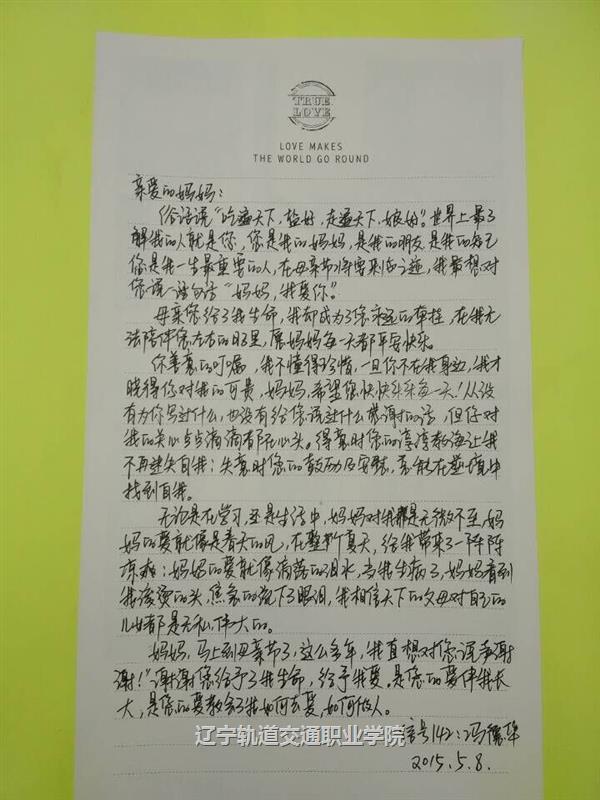 TRUE
LOVE
LOVE MAKES
THE WORLD GO ROUND
亲爱的妈妈：
俗话说“吃遍天下，盐好，走遍天下，娘好”。世界上最了
解我的人就是你，您是我的妈妈，是我的朋友是我的知己
您是我一生最重要的人，在母亲节将要来临之迹，我最想对
您说一该句话“妈妈，我爱你”。
母亲您给了我生命，我却成为了您永远的牵挂，在我无
法陪伴您左右的日子里，愿妈妈每一天都平安快乐。
你善意的叮嘱，我不懂得珍惜，一旦你不在我身边，我才
晓得你对我的可贵，妈妈，希望您快快乐乐每一天！从没
有为你写过什么，也没有给您说过什么感谢的话，但您对
我的关心点点滴滴都在心头。得意时您的淳淳教诲让我
不再迷失自我；失意时您的鼓励及安慰，总能在逆境中
找到自我。
无论是在学习，还是生活中，妈妈对我都是无微不至，妈
妈的爱就像是春天的风，在整个夏天，给我带来了一阵阵
凉爽；妈妈的爱就像滴落的泪水，当我生病了，妈妈看到
我滚烫的头，焦急的流下了眼泪，我相信天下的父母对自己的
儿女都是无私伟大的。
妈妈，马上到母亲节了，这么多年，我直想对您说声谢
谢！”谢谢您给予了我生命，给予我爱。是您的爱伴我长
大，是您的爱教会了我如何去爱，如何做人。
信号142：冯德华
辽宁轨道交通职业学院
2015.5.8.